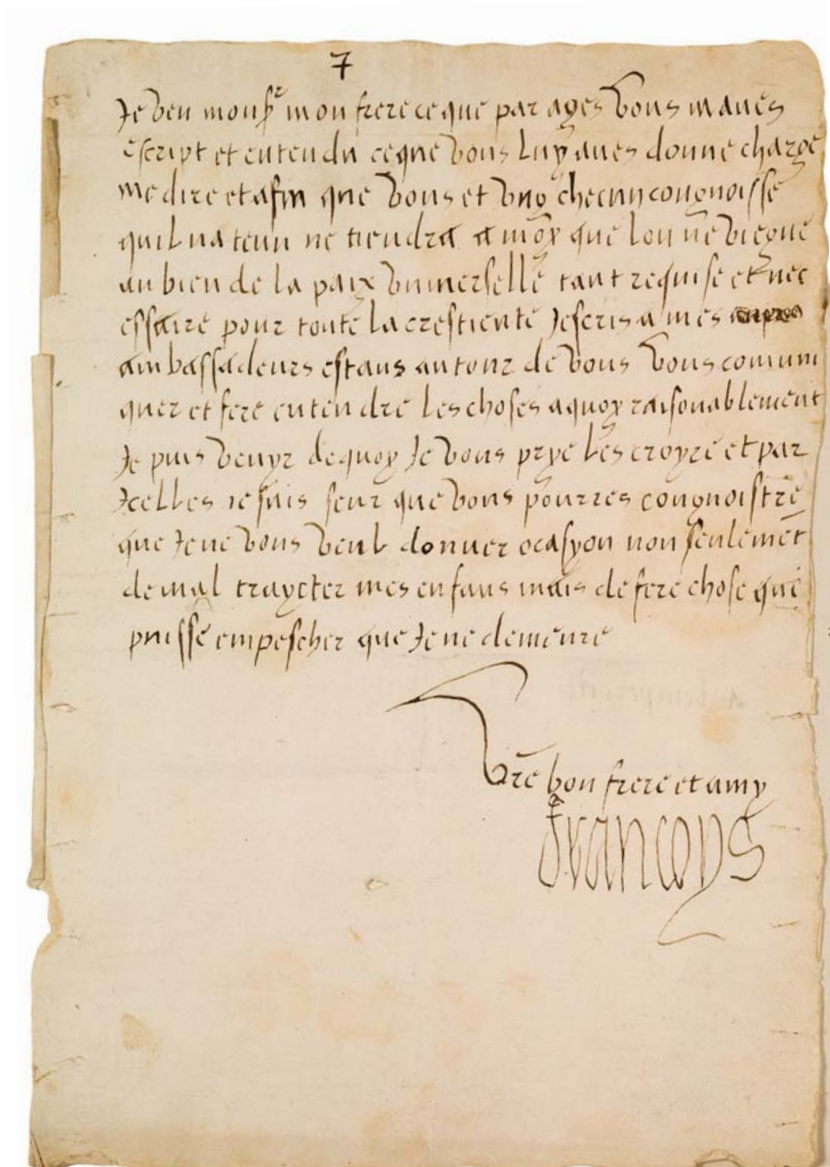 7
Je veu monsr mon frere ce que par ayes vous maves
escript et entendu ce que vous luy aves donne charge
me dire et afin que vous et ung checun cougnoisse
quil na tenu ne tiendra a moy que lon ne viegne
au bien de la paix universelle tant requise et nec
essaire pour toute la crestiente Jescris a mes
ambassadeurs estans autour de vous vous comuni
quer et fere entendre les choses a quoy raisonablement
Je puis venyr de quoy Je vous prye les croyre et par
Jcelles me fais seur que vous pourres cougnoistre
que Je ne vous veul donner ocasyon non seulemēt
de mal traycter mes enfans mais de fere chose que
puisse empescher que Je ne demeure
Vre bon frere et amy
Francoys